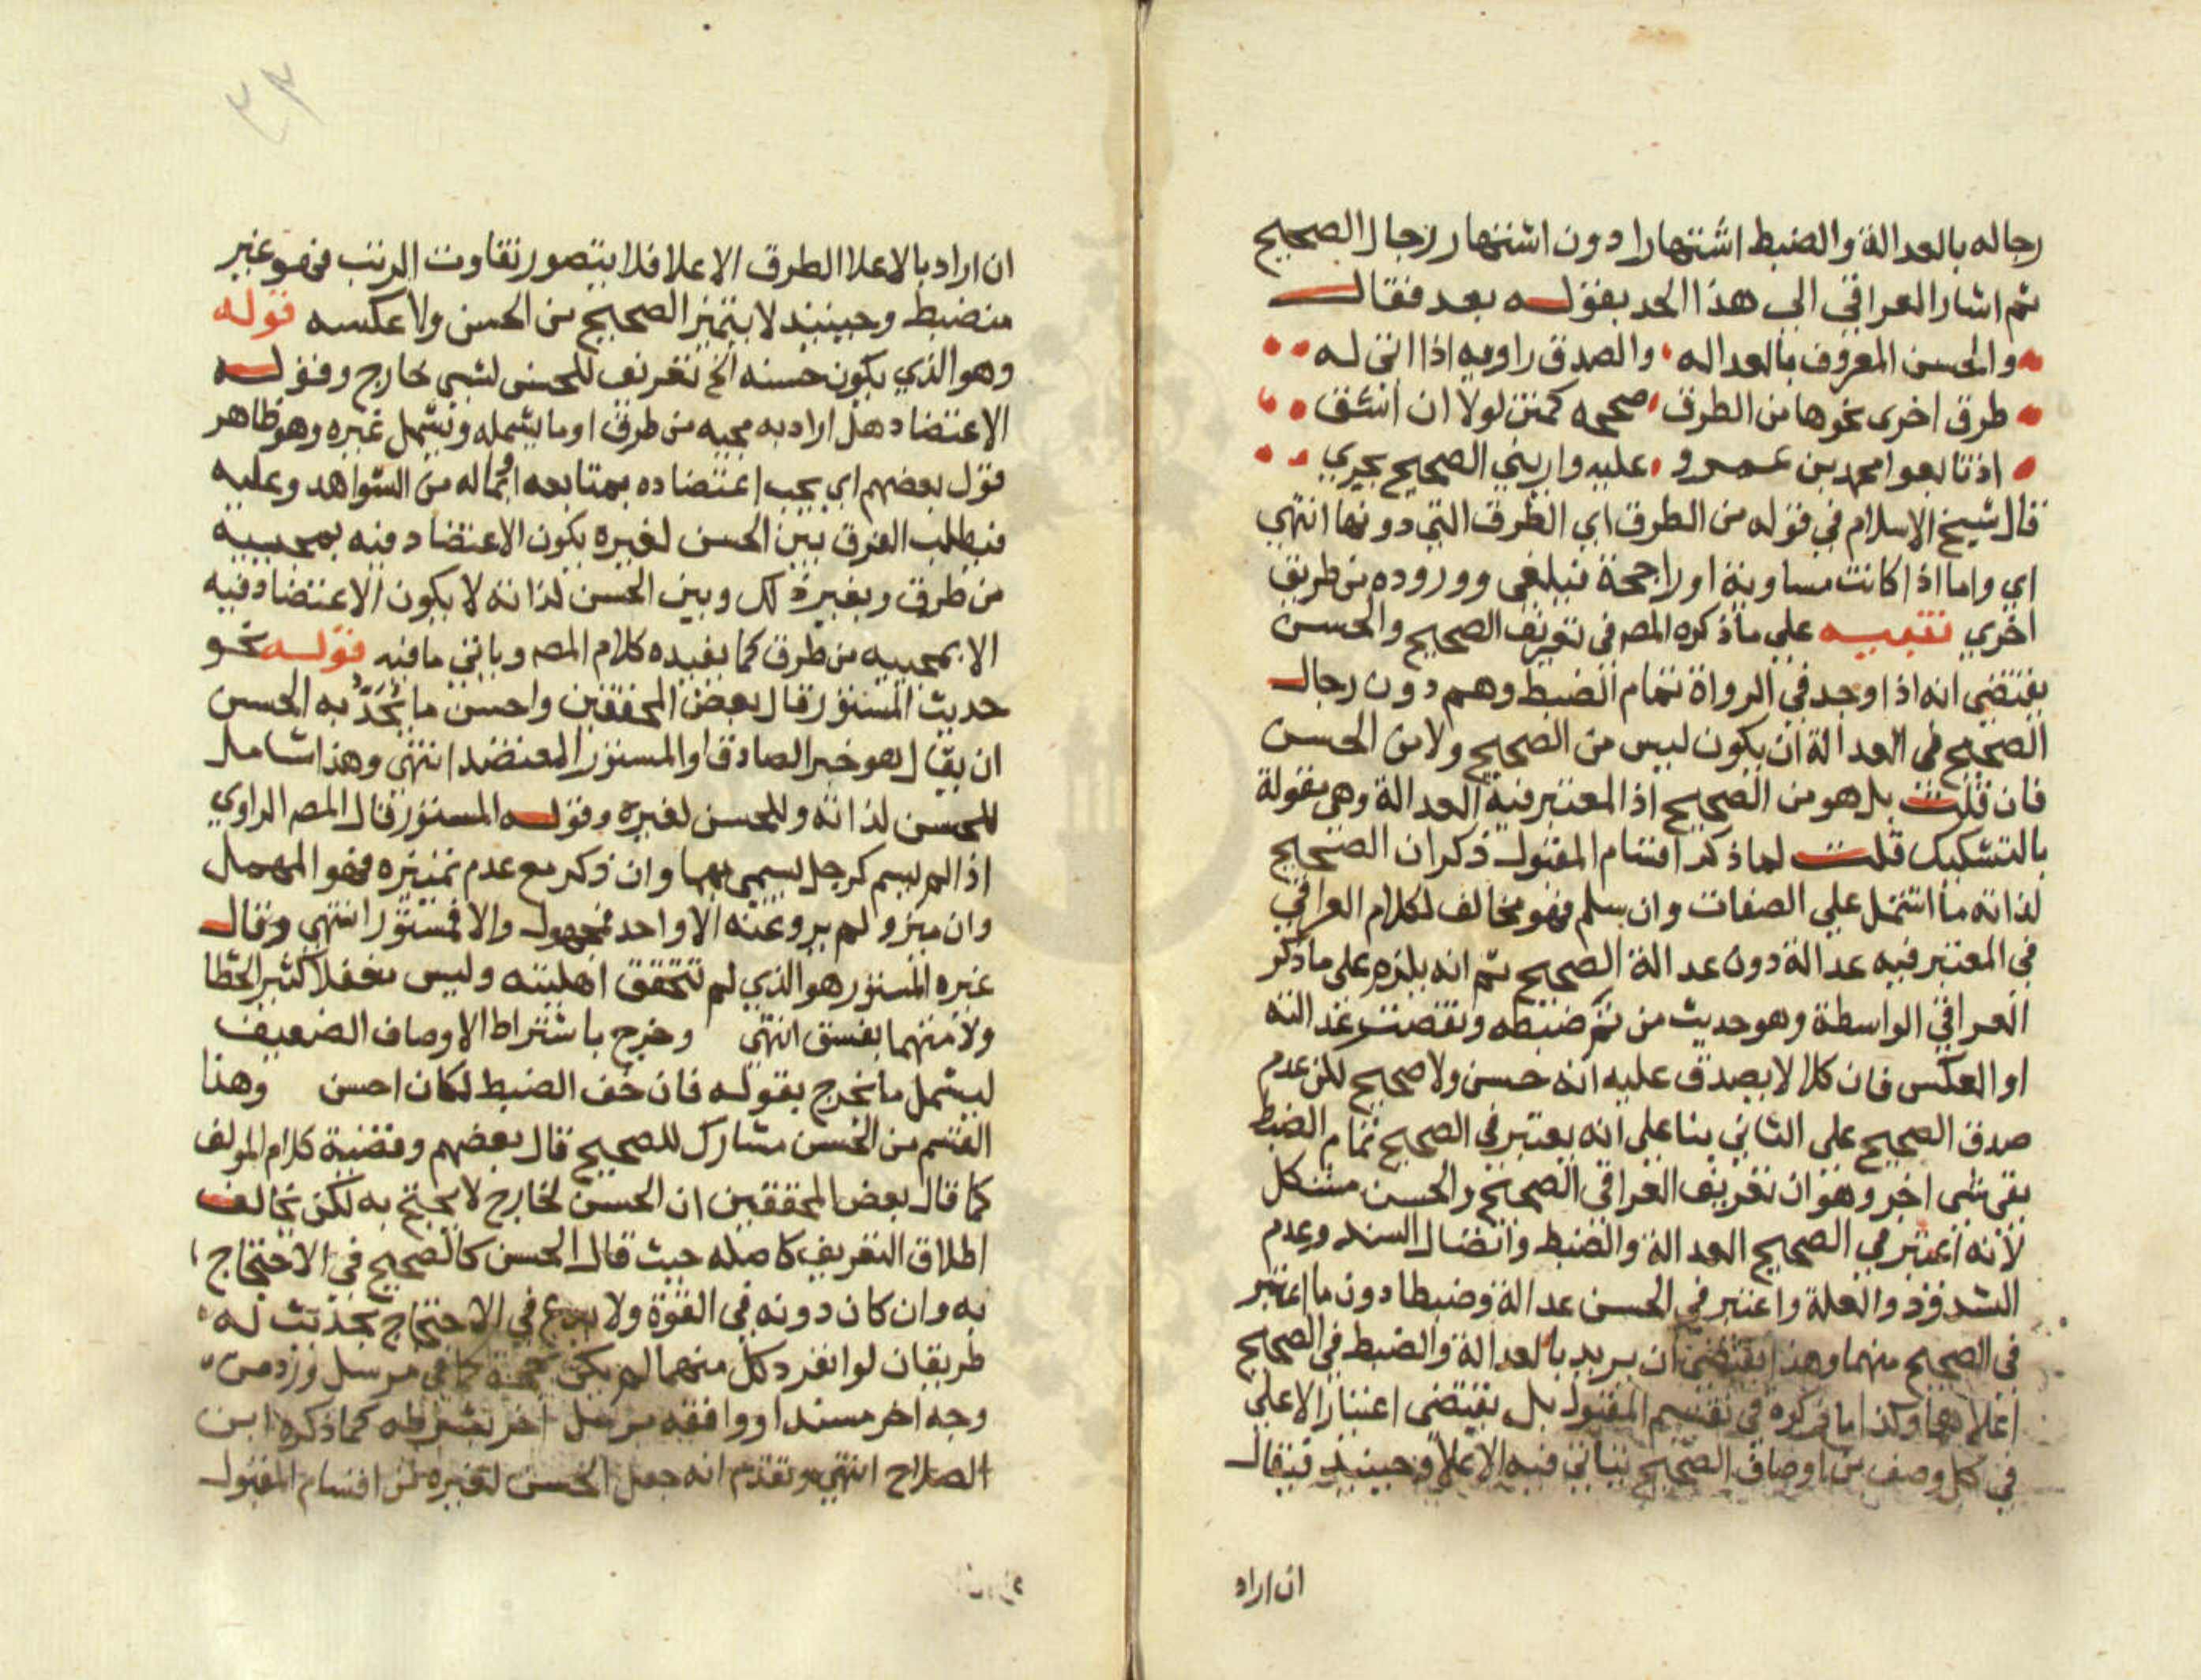 رجاله بالعدالة والضبط اشتهارا دون اشتهار رجال الصحيح
ثم اشار العراقي الى هذا الحد بقوله بعد فقال
والحسن المعروف بالعداله والصدق راويه اذا اتى له
طرق اخرى نحوها من الطرق صححه كمتن لولا ان اشق
اذ تابعوا محمد بن عمرو عليه وارتقى الصحيح يجري
قال شيخ الاسلام في قوله من الطرق اي الطرق التي دونها انتهي
اي واما اذا كانت مساوية او راجحة فيكفى وروده من طريق
اخري تنبيه علي ما ذكره المص في تعريف الصحيح والحسن
يقتضي انه اذا وجد في الرواة تمام الضبط وهم دون رجال
الصحيح في العدالة ان يكون ليس من الصحيح ولا من الحسن
فان قلت بل هو من الصحيح اذ المعتبر فيه العدالة وهي مقولة
بالتشكيك قلت لما ذكر اقسام المقبول ذكر ان الصحيح
لذاته ما اشتمل علي الصفات وان سلم فهو مخالف لكلام العراقي
في المعتبر فيه عدالة دون عدالة الصحيح ثم انه يلزم على ما ذكر
العراقي الواسطة وهو حديث من تم ضبطه ونقصت عدالته
او العكس فان كلا لا يصدق عليه انه حسن ولا صحيح لكن عدم
صدق الصحيح على الثاني بنا على انه يعتبر في الصحيح تمام الضبط
بقي شى اخر وهو ان تعريف العراقى الصحيح والحسن مشكل
لانه اعتبر في الصحيح العدالة والضبط واتصال السند وعدم
الشذوذ والعلة واعتبر في الحسن عدالة وضبطا دون ما اعتبر
في الصحيح منهما وهذا يقتضي ان يريد بالعدالة والضبط في الصحيح
اعلاهما وكذا ما ذكره في تقسيم المقبول بل يقتضى اعتبار الاعلى
في كل وصف من اوصاف الصحيح يتاتي فيه الاعلا وحينيذ فيقال
ان اراد
ان اراد بالاعلا الطرق الاعلا فلا يتصور تفاوت الرتب فهو غير
منضبط وحينيذ لا يتميز الصحيح من الحسن ولا عكسه قوله
وهو الذي يكون حسنه الخ تعريف للحسن لشى خارج وقوله
الاعتضاد هل اراد به مجيه من طرق او ما يشمله ويشمل غيره وهو ظاهر
قول بعضهم اي يجب اعتضاده بمتابعه او بما له من الشواهد وعليه
فيطلب الفرق بين الحسن لغيره يكون الاعتضاد فيه بمجييه
من طرق وبغير ذلك وبين الحسن لذاته لا يكون الاعتضاد فيه
الا بمجييه من طرق كما يفيده كلام المص وياتي ما فيه قوله نحو
حديث المستور قال بعض المحققين واحسن ما يحد به الحسن
ان يقال هو خبر الصادق او المستور المعتضد انتهي وهذا شامل
للحسن لذاته وللحسن لغيره وقوله المستور قال المص الراوي
اذا لم يسم كرجل يسمى مبهما وان ذكر مع عدم تمييزه فهو المهمل
وان ميز ولم يرو عنه الا واحد فمجهول والا فمستور انتهي وقال
غيره المستور هو الذي لم تتحقق اهليته وليس مغفلا كثير الخطا
ولا متهما بفسق انتهي وخرج باشتراط الاوصاف الضعيف
ليشمل ما يخرج بقوله فان خف الضبط لكان احسن وهذا
القسم من الحسن مشارك للصحيح قال بعضهم وقضية كلام المولف
كما قال بعض المحققين ان الحسن لخارج لا يحتج به لكن يخالف
اطلاق التعريف كاصله حيث قال الحسن كالصحيح في الاحتجاج
به وان كان دونه في القوة ولا بدع في الاحتجاج بحديث له
طريقان لو انفرد كل منهما لم يكن حجة كما في مرسل ورد من
وجه اخر مسندا او وافقه مرسل اخر بشرطه كما ذكره ابن
الصلاح انتهي وتقدم انه جعل الحسن لغيره من اقسام المقبول